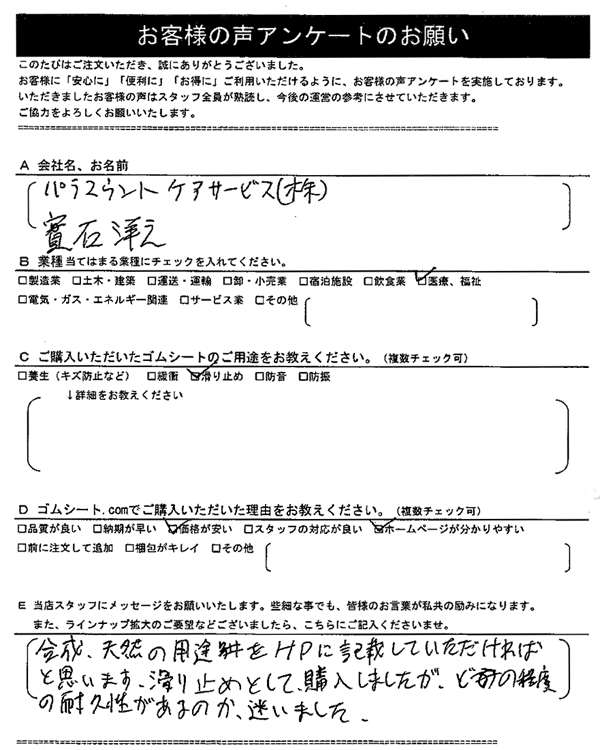 お客様の声アンケートのお願い
このたびはご注文いただき、誠にありがとうございました。
お客様に「安心に」「便利に」「お得に」ご利用いただけるように、お客様の声アンケートを実施しております。
いただきましたお客様の声はスタッフ全員が熟読し、今後の運営の参考にさせていただきます。
ご協力をよろしくお願いいたします。
A 会社名、お名前
パラマウントケアサービス(株)
寳石洋え
B 業種当てはまる業種にチェックを入れてください。
□製造業 □土木・建築 □運送・運輸 □卸・小売業 □宿泊施設 □飲食業 ☑医療、福祉
□電気・ガス・エネルギー関連 □サービス業 □その他
C ご購入いただいたゴムシートのご用途をお教えください。(複数チェック可)
□養生(キズ防止など) □緩衝 ☑滑り止め □防音 □防振
↓詳細をお教えください
D ゴムシート.comでご購入いただいた理由をお教えください。(複数チェック可)
□品質が良い □納期が早い ☑価格が安い □スタッフの対応が良い ☑ホームページが分かりやすい
□前に注文して追加 □梱包がキレイ □その他
E 当店スタッフにメッセージをお願いいたします。些細な事でも、皆様のお言葉が私共の励みになります。
また、ラインナップ拡大のご要望などございましたら、こちらにご記入くださいませ。
合成、天然の用途別をHPに記載していただければ
と思います。滑り止めとして、購入しましたが、どの程度
の耐久性があるのか、迷いました。